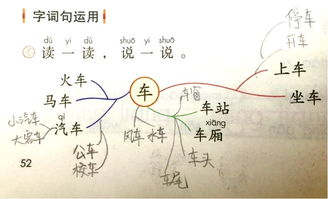 字词句运用
dú yi dú shuō yi shuō
读一读，说一说。
停车
开车
火车
车
上车
马车
坐车
小汽车
qì
汽车
车站
大客车
风车 水车
xiāng
车厢
公车
校车
车头
车尾
52